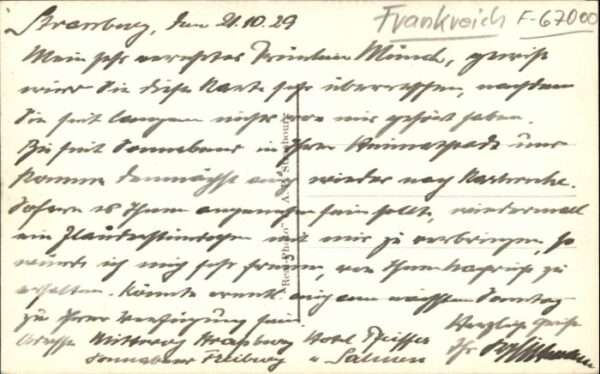 Strassburg, den 21.10.29
Frankreich F-67000
Mein sehr verehrtes Fräulein Münch, gewiss
wird Sie diese Karte sehr überraschen, nachdem
Sie seit langem nichts von mir gehört haben.
Bin seit Sonnabend in Ihrer Heimatstadt und
komme demnächst auch wieder nach Karlsruhe.
Sofern es Ihnen angenehm sein sollte, wiedermal
ein Plauderstündchen mit mir zu verbringen, so
würde ich mich sehr freuen, von Ihnen Nachricht zu
erhalten. Könnte eventl. auch am nächsten Sonntag
zu Ihrer Verfügung sein.
Herzliche Grüsse
Adresse Mittwoch Strassburg Hotel Pfeiffer
Ihr
Sonnabend Freiburg " Salmen
"Real-Photo" A. Strasbourg